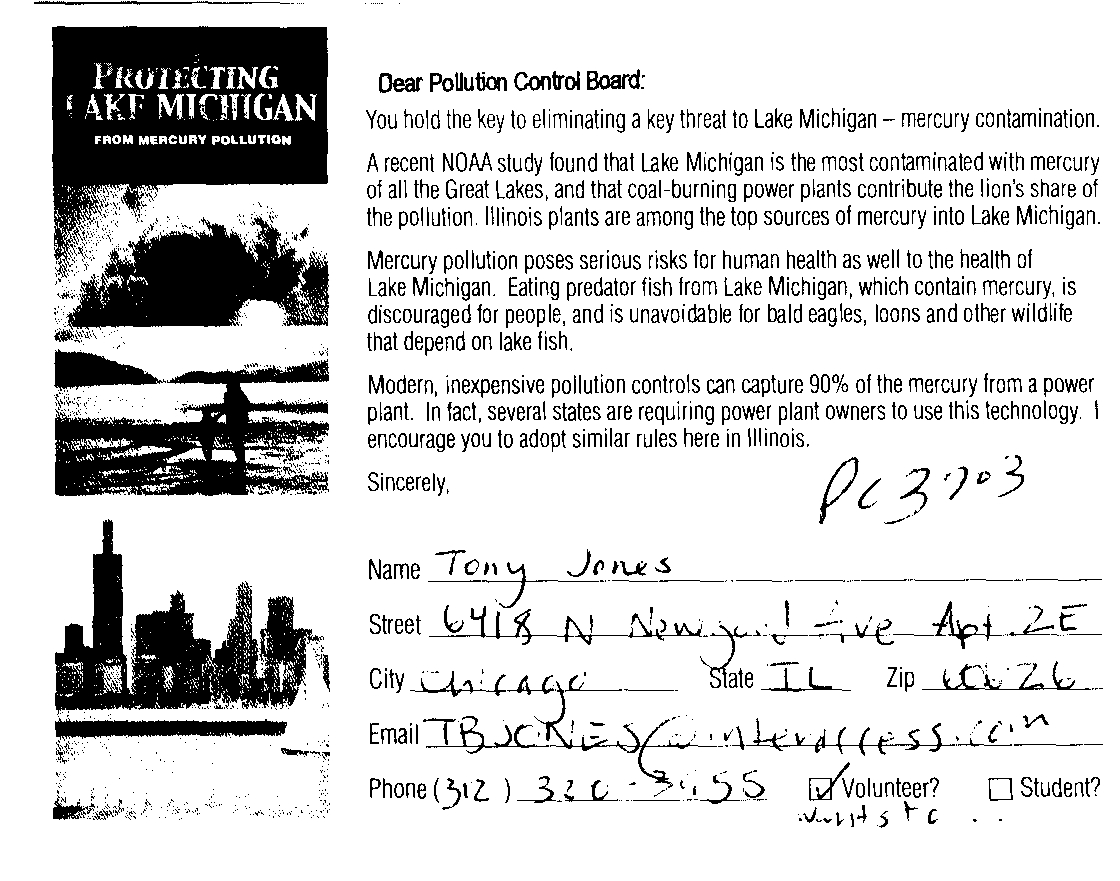 PROTECTING
LAKE MICHIGAN
FROM MERCURY POLLUTION
Dear Pollution Control Board:
You hold the key to eliminating a key threat to Lake Michigan – mercury contamination.
A recent NOAA study found that Lake Michigan is the most contaminated with mercury
of all the Great Lakes, and that coal-burning power plants contribute the lion's share of
the pollution. Illinois plants are among the top sources of mercury into Lake Michigan.
Mercury pollution poses serious risks for human health as well to the health of
Lake Michigan. Eating predator fish from Lake Michigan, which contain mercury, is
discouraged for people, and is unavoidable for bald eagles, loons and other wildlife
that depend on lake fish.
Modern, inexpensive pollution controls can capture 90% of the mercury from a power
plant. In fact, several states are requiring power plant owners to use this technology. I
encourage you to adopt similar rules here in Illinois.
Sincerely,
PC3703
Name Tony Jones
Street 6418 N Newgard Ave Apt. 2E
City Chicago State IL Zip 60626
Email TBJONES@interaccess.com
Phone (312) Volunteer? Student?